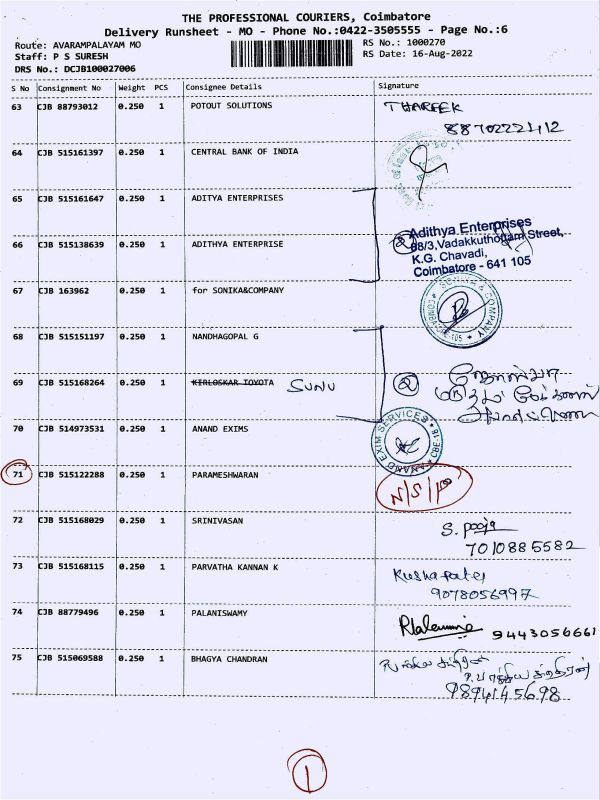 THE PROFESSIONAL COURIERS, Coimbatore
Delivery Runsheet - MO - Phone No.:0422-3505555 - Page No.:6
Route: AVARAMPALAYAM MO
RS No.: 1000270
Staff: P S SURESH
RS Date: 16-Aug-2022
DRS No.: DCJB100027006
S No Consignment No Weight PCS Consignee Details Signature
63 CJB 88793012 0.250 1 POTOUT SOLUTIONS THAREEK
8870222112
64 CJB 515161397 0.250 1 CENTRAL BANK OF INDIA
65 CJB 515161647 0.250 1 ADITYA ENTERPRISES
66 CJB 515138639 0.250 1 ADITHYA ENTERPRISE
2
Adithya Enterprises
88/3,Vadakkuthottam Street,
K.G. Chavadi,
Coimbatore - 641 105
67 CJB 163962 0.250 1 for SONIKA&COMPANY
SONIKA & COMPANY
68 CJB 515151197 0.250 1 NANDHAGOPAL G
69 CJB 515168264 0.250 1 KIRLOSKAR TOYOTA SUNU
2
70 CJB 514973531 0.250 1 ANAND EXIMS
ANAND EXIM SERVICES * CBE-18 *
71 CJB 515122288 0.250 1 PARAMESHWARAN
72 CJB 515168029 0.250 1 SRINIVASAN S. pooja
7010885582
73 CJB 515168115 0.250 1 PARVATHA KANNAN K
9078056997
74 CJB 88779496 0.250 1 PALANISWAMY
9443056661
75 CJB 515069588 0.250 1 BHAGYA CHANDRAN
9894145698
1